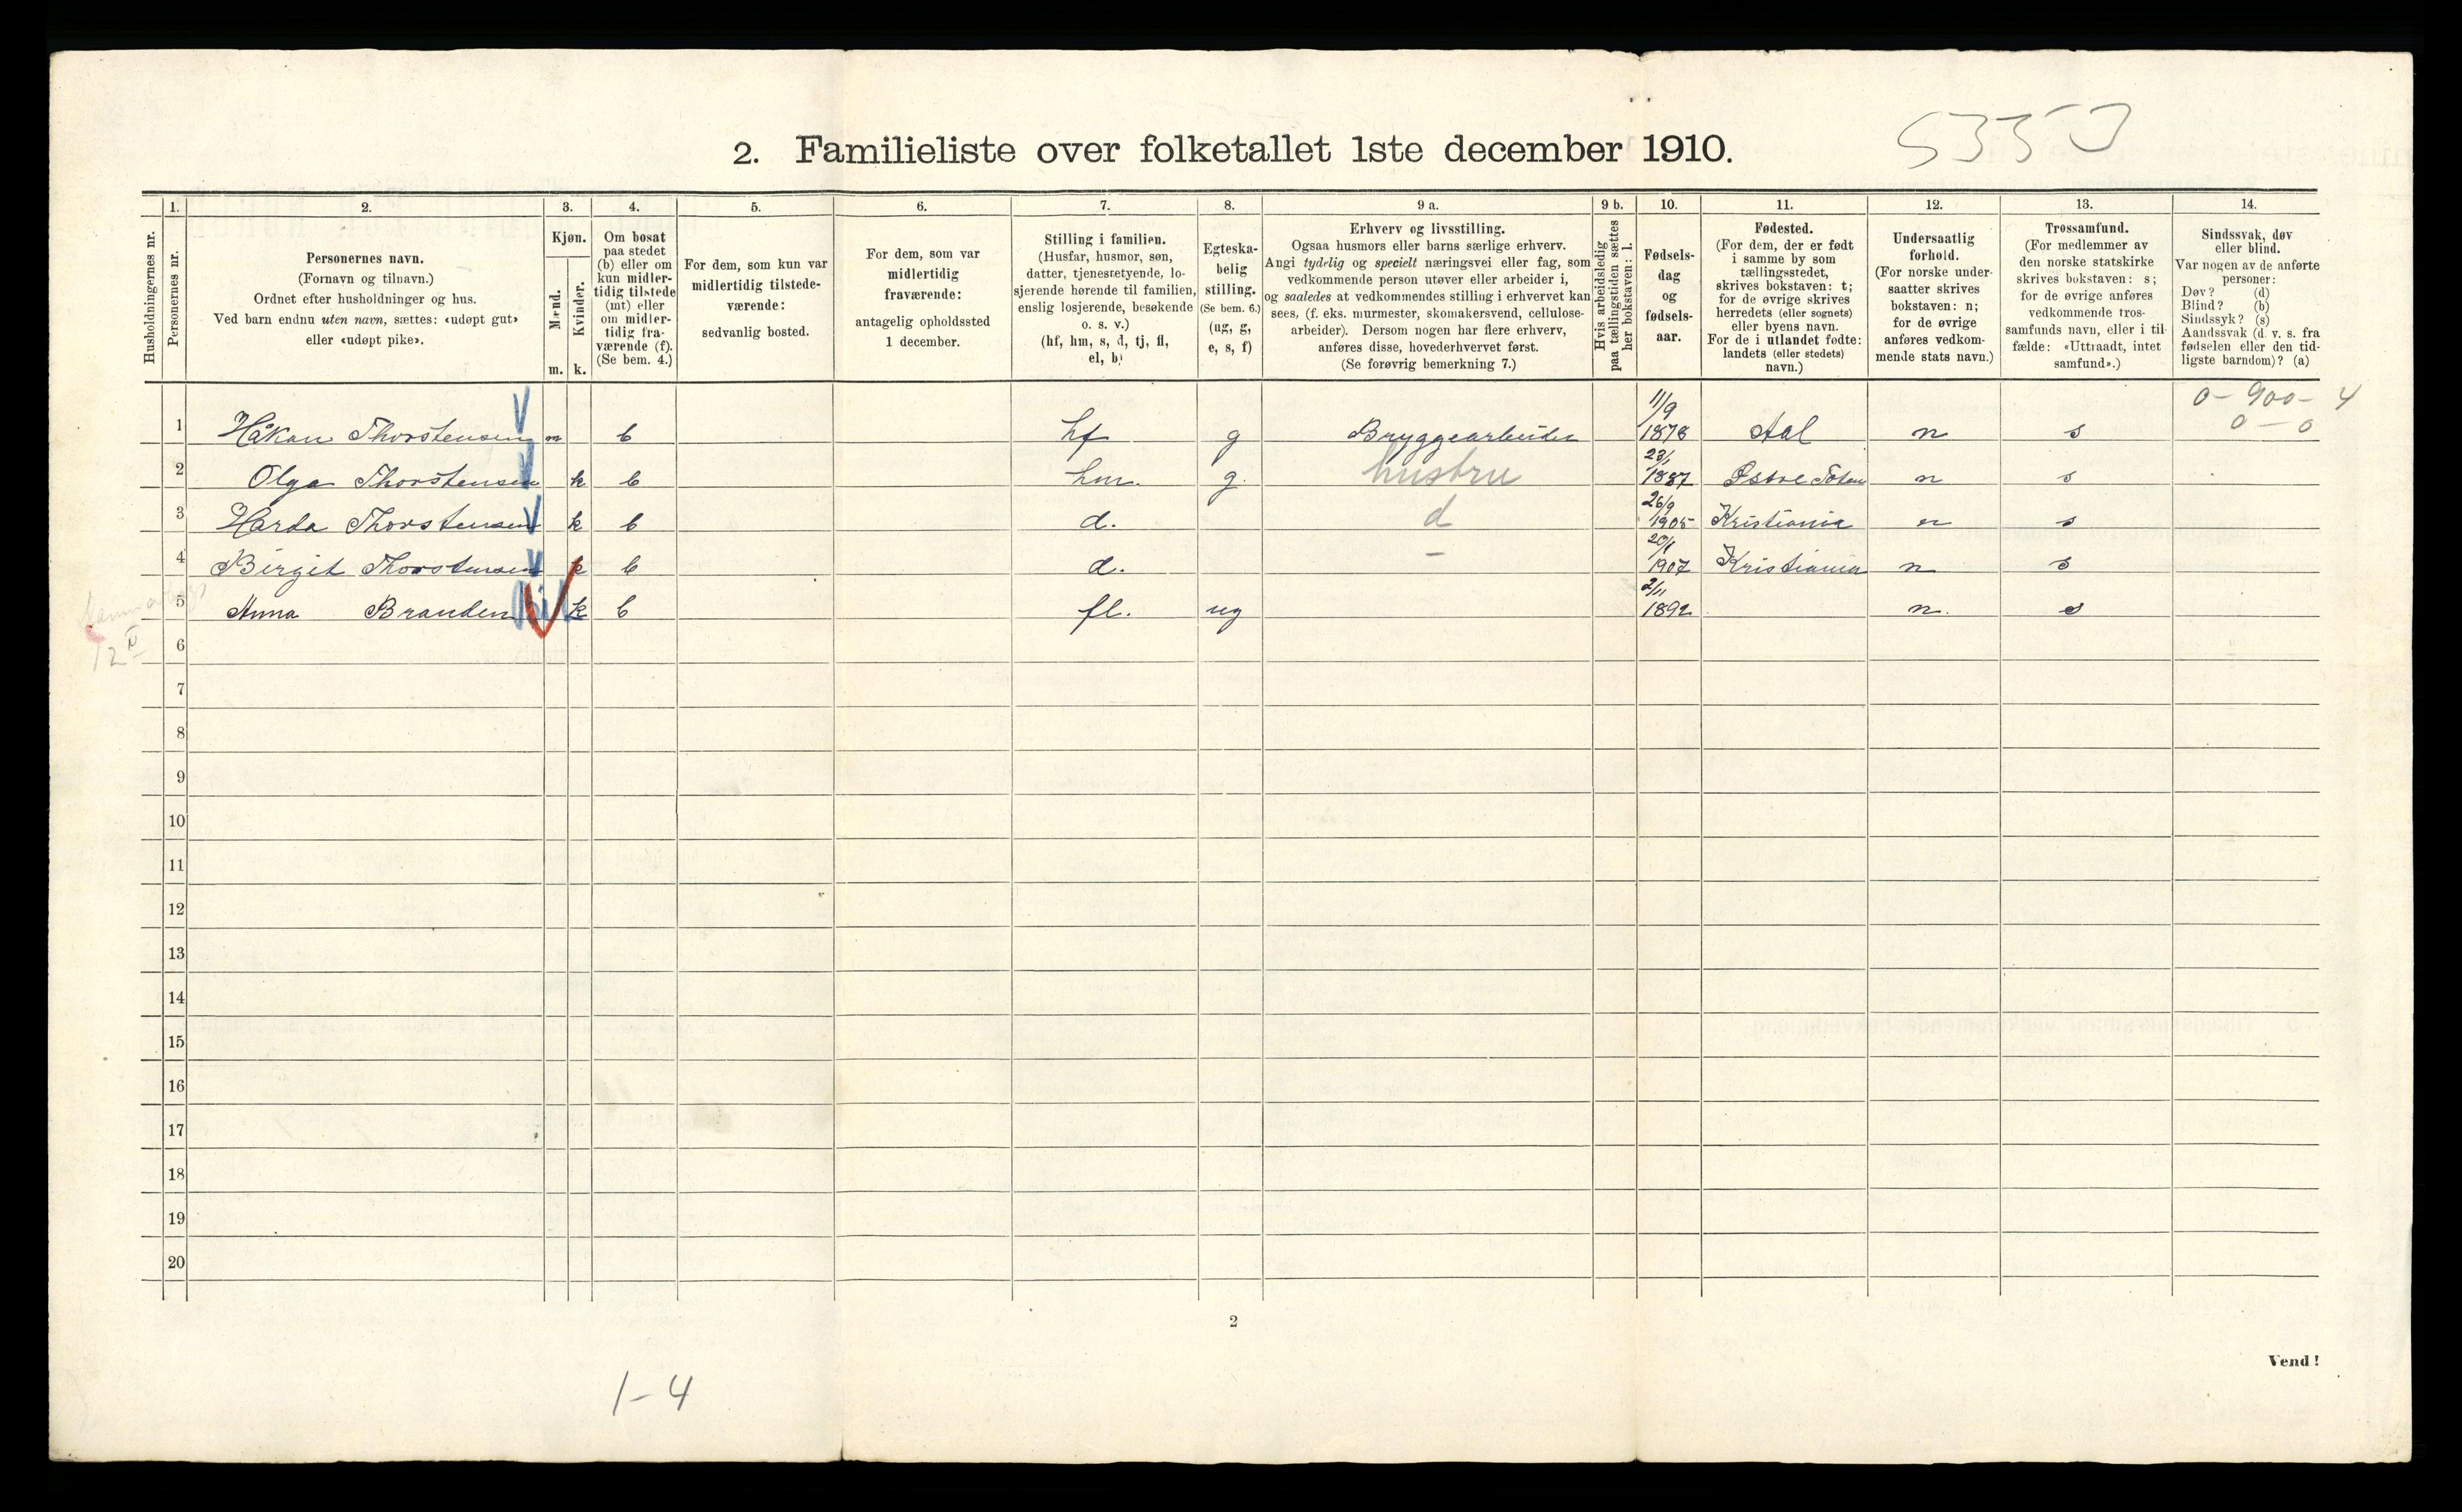 5353
2. Familieliste over folketallet 1ste december 1910.
Husholdningernes nr.
1.
Personernes nr.
2.
Personernes navn.
(Fornavn og tilnavn.)
Ordnet efter husholdninger og hus.
Ved barn endnu uten navn, sættes: «udøpt gut»
eller «udøpt pike».
3.
Kjøn.
Mænd.
Kvinder.
m. k.
4.
Om bosat
paa stedet
(b) eller om
kun midler-
tidig tilstede
(mt) eller
om midler-
tidig fra-
værende (f).
(Se bem. 4.)
5.
For dem, som kun var
midlertidig tilstede-
værende:
sedvanlig bosted.
6.
For dem, som var
midlertidig
fraværende:
antagelig opholdssted
1 december.
7.
Stilling i familien.
(Husfar, husmor, søn,
datter, tjenestetyende, lo-
sjerende hørende til familien,
enslig losjerende, besøkende
o. s. v.)
(hf, hm, s, d, tj, fl,
el, b)
8.
Egteska-
belig
stilling.
(Se bem. 6.)
(ug, g,
e, s, f)
9 a.
Erhverv og livsstilling.
Ogsaa husmors eller barns særlige erhverv.
Angi tydelig og specielt næringsvei eller fag, som
vedkommende person utøver eller arbeider i,
og saaledes at vedkommendes stilling i erhvervet kan
sees, (f. eks. murmester, skomakersvend, cellulose-
arbeider). Dersom nogen har flere erhverv,
anføres disse, hovederhvervet først.
(Se forøvrig bemerkning 7.)
9 b.
Hvis arbeidsledig
paa tællingstiden sættes
her bokstaven: l.
10.
Fødsels-
dag
og
fødsels-
aar.
11.
Fødested.
(For dem, der er født
i samme by som
tællingsstedet,
skrives bokstaven: t;
for de øvrige skrives
herredets (eller sognets)
eller byens navn.
For de i utlandet fødte:
landets (eller stedets)
navn.)
12.
Undersaatlig
forhold.
(For norske under-
saatter skrives
bokstaven: n;
for de øvrige
anføres vedkom-
mende stats navn.)
13.
Trossamfund.
(For medlemmer av
den norske statskirke
skrives bokstaven: s;
for de øvrige anføres
vedkommende tros-
samfunds navn, eller i til-
fælde: «Uttraadt, intet
samfund».)
14.
Sindssvak, døv
eller blind.
Var nogen av de anførte
personer:
Døv? (d)
Blind? (b)
Sindssyk? (s)
Aandssvak (d. v. s. fra
fødselen eller den tid-
ligste barndom)? (a)
0 - 900 - 4
0 - 0
1 Håkon Thorstensen m b hf g Bryggearbeider 11/9 1878 Aal n s
2 Olga Thorstensen k b hm. g. hustru 23/1 1887 Østre Toten n s
3 Harda Thorstensen k b d. d 26/9 1905 Kristiania n s
4 Birgit Thorstensen k b d. - 20/1 1907 Kristiania n s
5 Anna Branden k b fl. ug 2/11 1892 n. s
6
7
8
9
10
11
12
13
14
15
16
17
18
19
20
2
Vend!
1-4